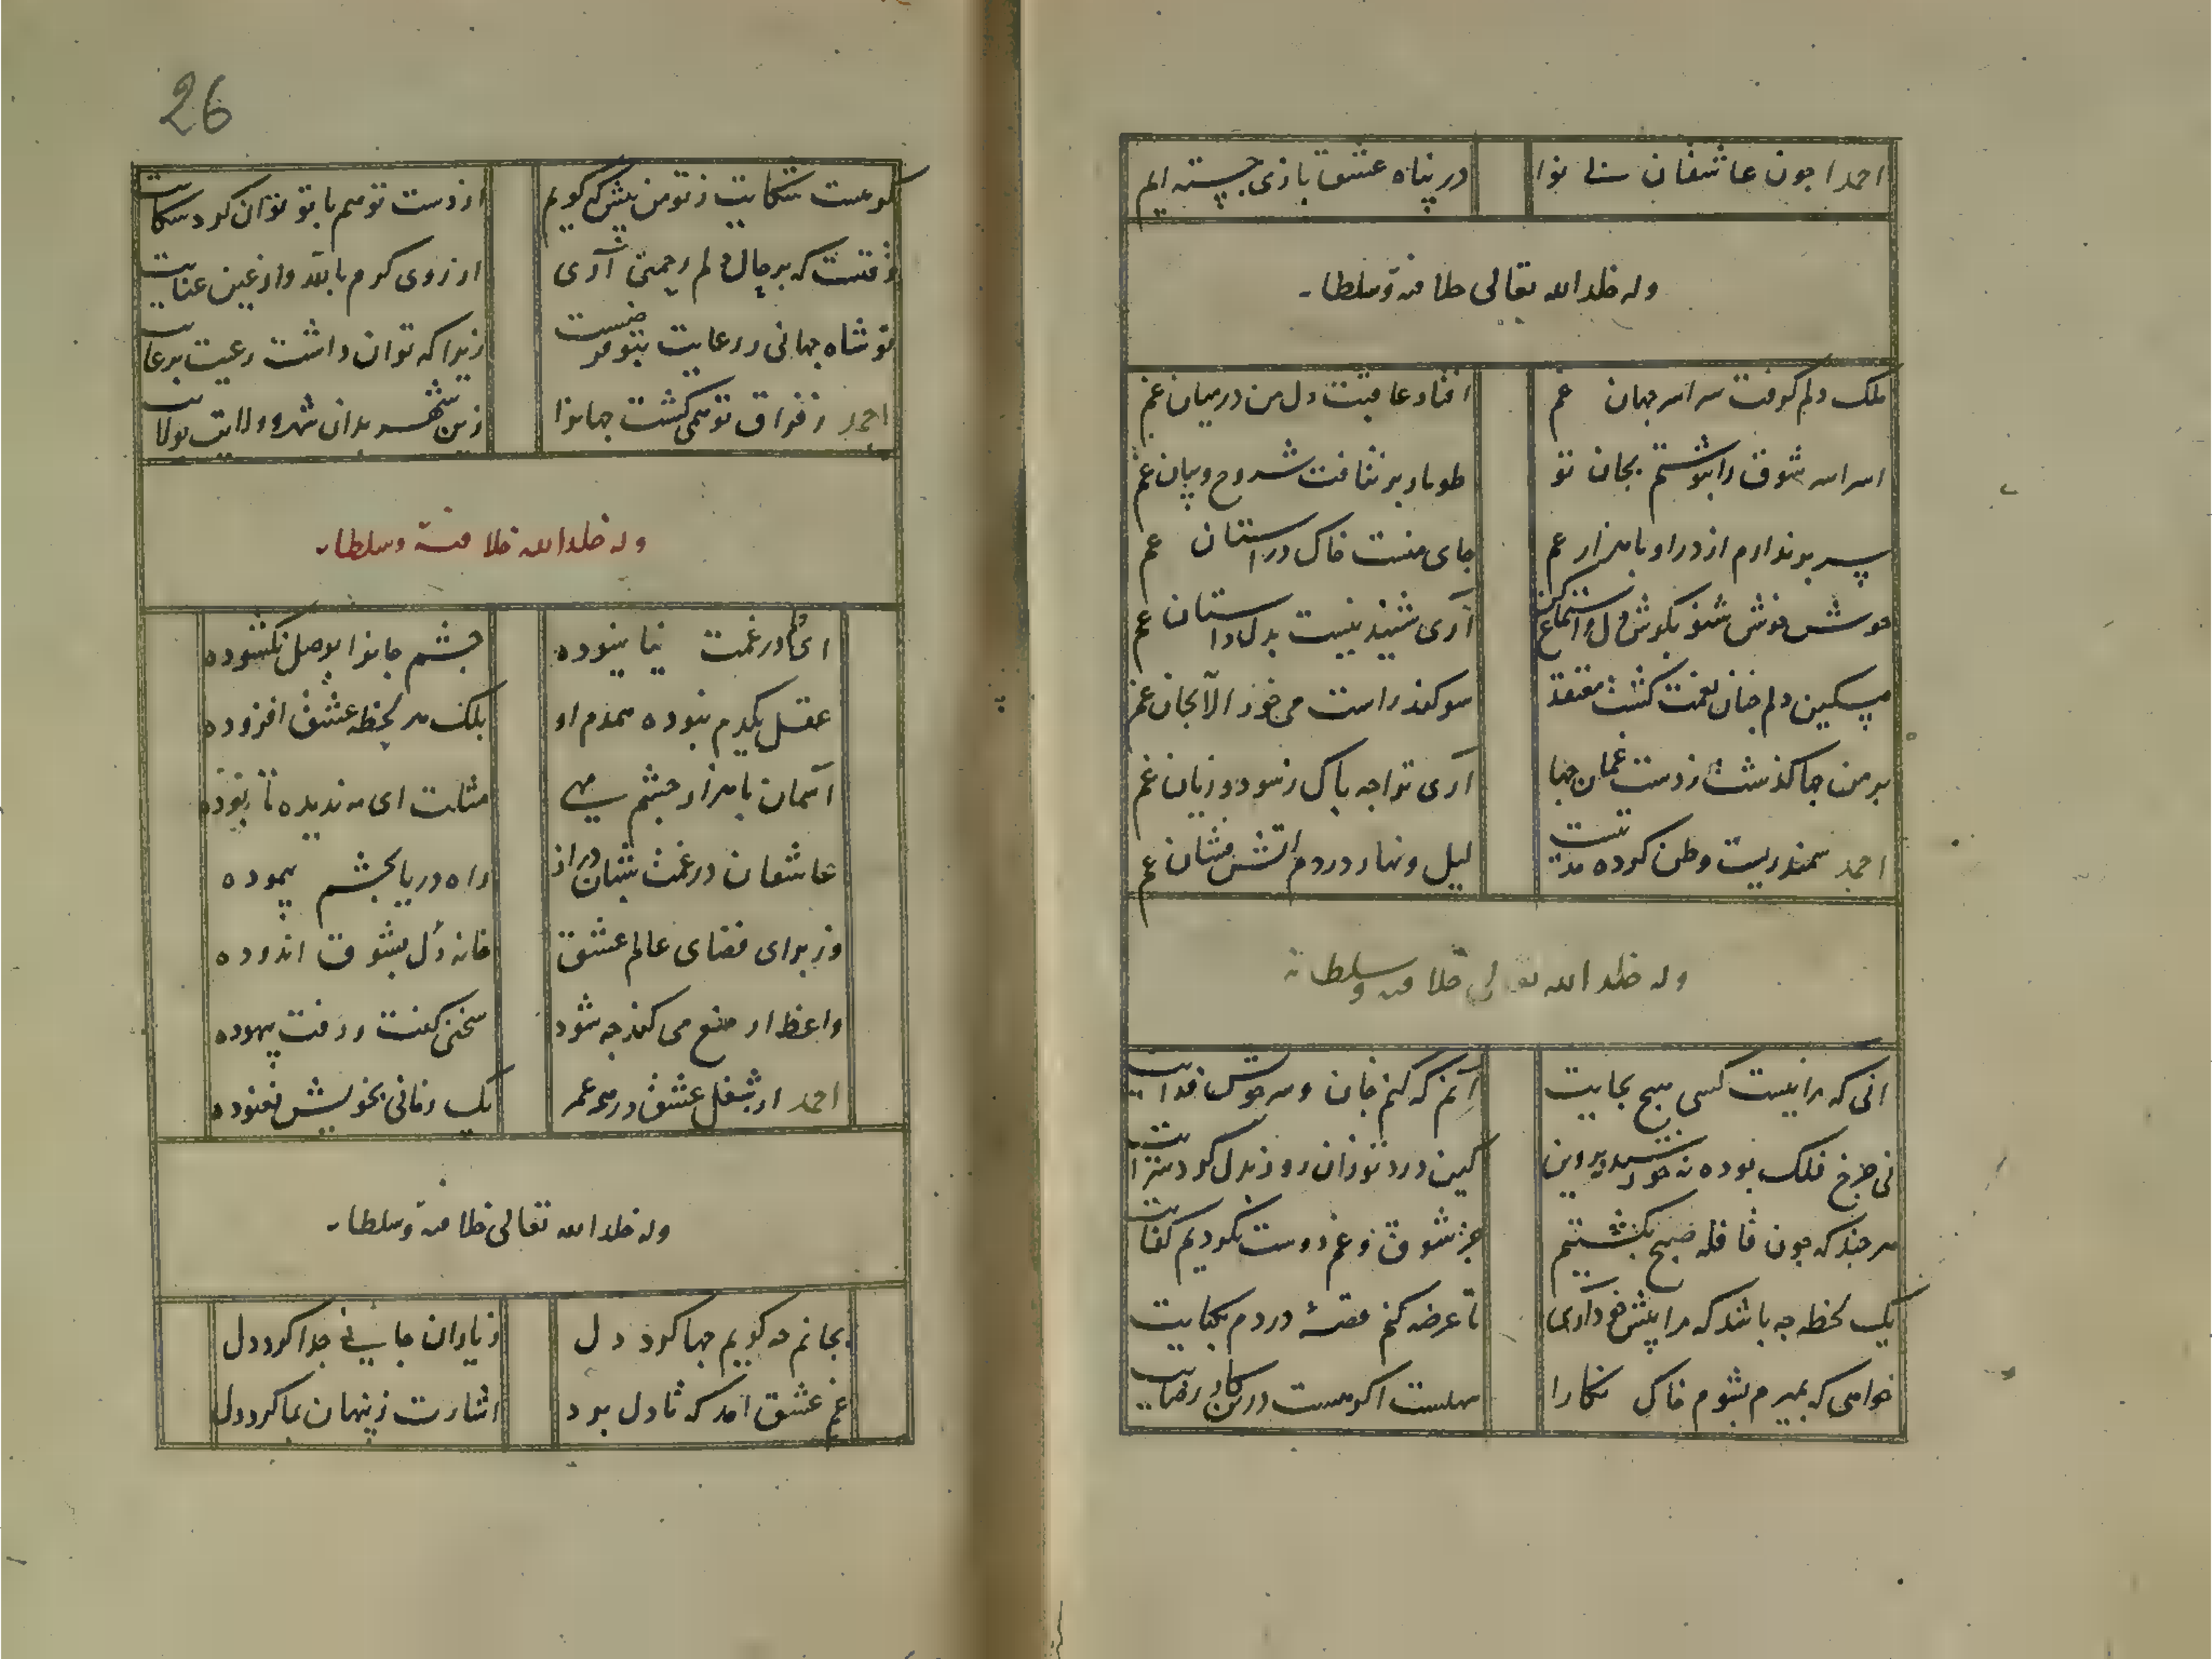 احمدا جون عاشقان بی نوا
در پناه عشقبازی جسته ایم
وله خلد الله تعالی خلافته وسلطانه
ملک دلم کرفت سراسر جهان غم
افتاد عاقبت دل من در میان غم
اسرار شوق را بنوشتم بجان تو
طومار بر نتافت شروح وبیان غم
سر بر ندارم از در او با هزار غم
جای منست خاک در استان غم
خوش خوش شنو بکوش دل واستماع کن
آری شنیدنیست بدل داستان غم
مسکین دلم جنان بغمت کشت معتقد
سوکند راست می خورد الا بجان غم
بر من جها کذشت ز دست غمان جها
آری ترا جه باک ز سود و زیان غم
احمد سمندریست وطن کرده مدتیست
لیل ونهار در دم اتش فشان غم
وله خلد الله تعالی خلافته وسلطانه
انی که مرا نیست کسی هیج بجایت
آنم که کنم جان وسر خوش فدایت
نی جرخ فلک بوده نه خورشید وپروین
کین درد تو زان روز بدل کرد سرایت
هر جند که جون قافله صبح بکشتیم
جز شوق و غم دوست نکردیم کفایت
یک لحظه جه باشد که مرا پیش خود آری
تا عرضه کنم قصهٔ دردم بکنایت
خواهی که بمیرم بشوم خاک نکارا
سهلست اکر هست درین کار رضایت
26
کر هست شکایت ز تو من پیش که کویم
از دست تو هم با تو توان کرد شکایت
وقتست که بر حال دلم رحمتی آری
از روی کرم بالله واز عین عنایت
تو شاه جهانی و رعایت بتو فرضست
زیرا که توان داشت رعیت برعایت
احمد ز فراق تو همی کشت جهانرا
زین شهر بدان شهر و ولایت بولایت
وله خلد الله خلافته وسلطانه
ای دلم در غمت نیاسوده
جشم جانرا بوصل نکشوده
عقل یکدم نبوده همدم او
بلک هر لحظه عشق افزوده
آسمان با هزار جشم مهی
مثلت ای مه ندیده تا بوده
عاشقان در غمت شبان دراز
راه دریا بجشم پیموده
وز برای فضای عالم عشق
خانه دل بشوق اندوده
واعظ ار منع می کند جه شود
سخنی کفت ورفت بیهوده
احمد از شغل عشق در همه عمر
یک زمانی بخویش نغنوده
وله خلد الله تعالی خلافته وسلطانه
بجانم جه کویم جها کرد دل
ز یاران جانی جدا کرد دل
غم عشق امد که تا دل برد
اشارت ز پنهان بما کرد دل